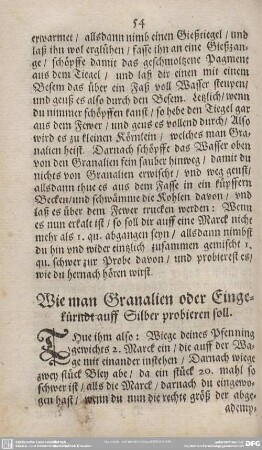 54
erwarmet / allsdann nimb einen Gießtiegel / und
laß ihn wol erglühen / fasse ihn an eine Gießzan-
ge / schöpffe damit das geschmoltzene Pagment
aus dem Tiegel / und laß dir einen mit einem
Besem das über ein Faß voll Wasser steupen /
und geuß es also durch den Besem. Letzlich / wenn
du nimmer schöpffen kanst / so hebe den Tiegel gar
aus dem Fewer / und geus es vollend durch / Also
wird es zu kleinen Körnlein / welches man Gra-
nalien heist. Darnach schöpffe das Wasser oben
von den Granalien fein sauber hinweg / damit du
nichts von Granalien erwischst / und weg geust /
allsdann thue es aus dem Fasse in ein küpffern
Becken / und schwämme die Kohlen davon / und
laß es über dem Fewer trucken werden: Wenn
es nun erkalt ist / so soll dir auff eine Marck nicht
mehr als 1. qu. abgangen seyn / allsdann nimbst
du hin und wider eintzlich zusammen gemischt 1.
qu. schwer zur Probe davon / und probierest es /
wie du hernach hören wirst.
Wie man Granalien oder Einge-
kürndt auff Silber probieren soll.
Thue ihm also: Wiege deines Pfenning
gewichts 2. Marck ein / die auff der Wa-
ge mit einander instehen / Darnach wiege
zwey stück Bley abe / da ein stück 20. mahl so
schwer ist / alls die Marck / darnach du eingewo-
gen hast / wenn du nun die rechte größ der abge-
ademp-